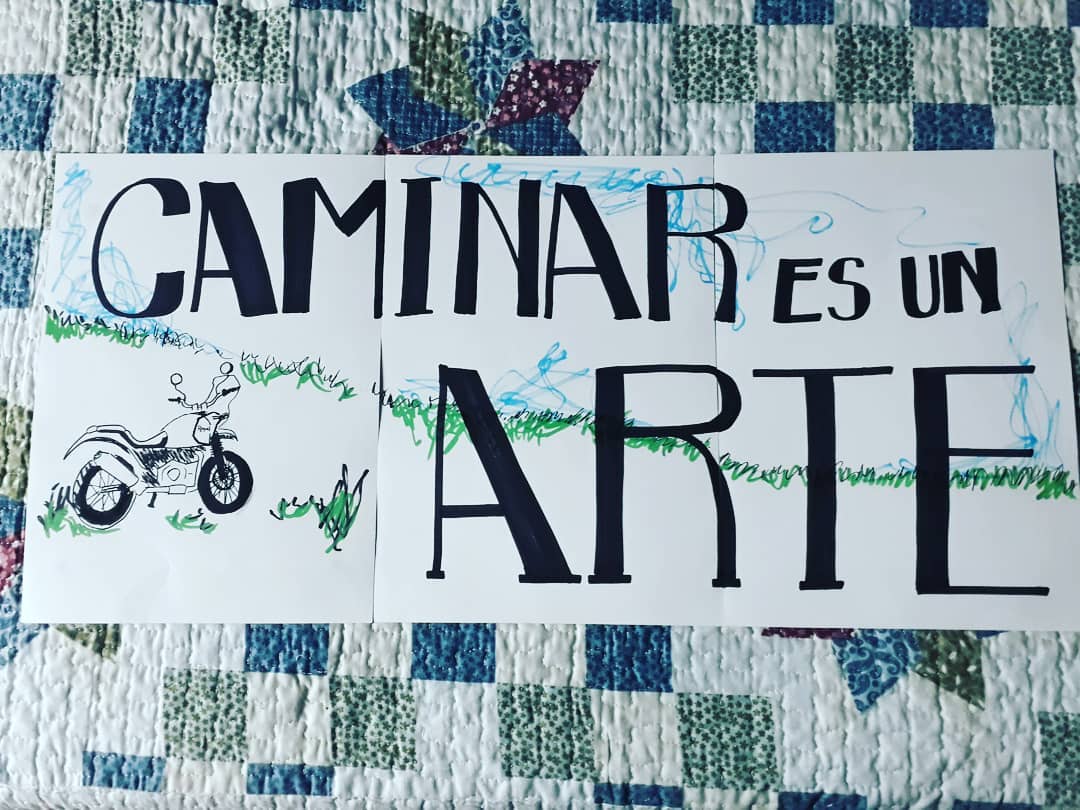 CAMINAR ES UN
ARTE